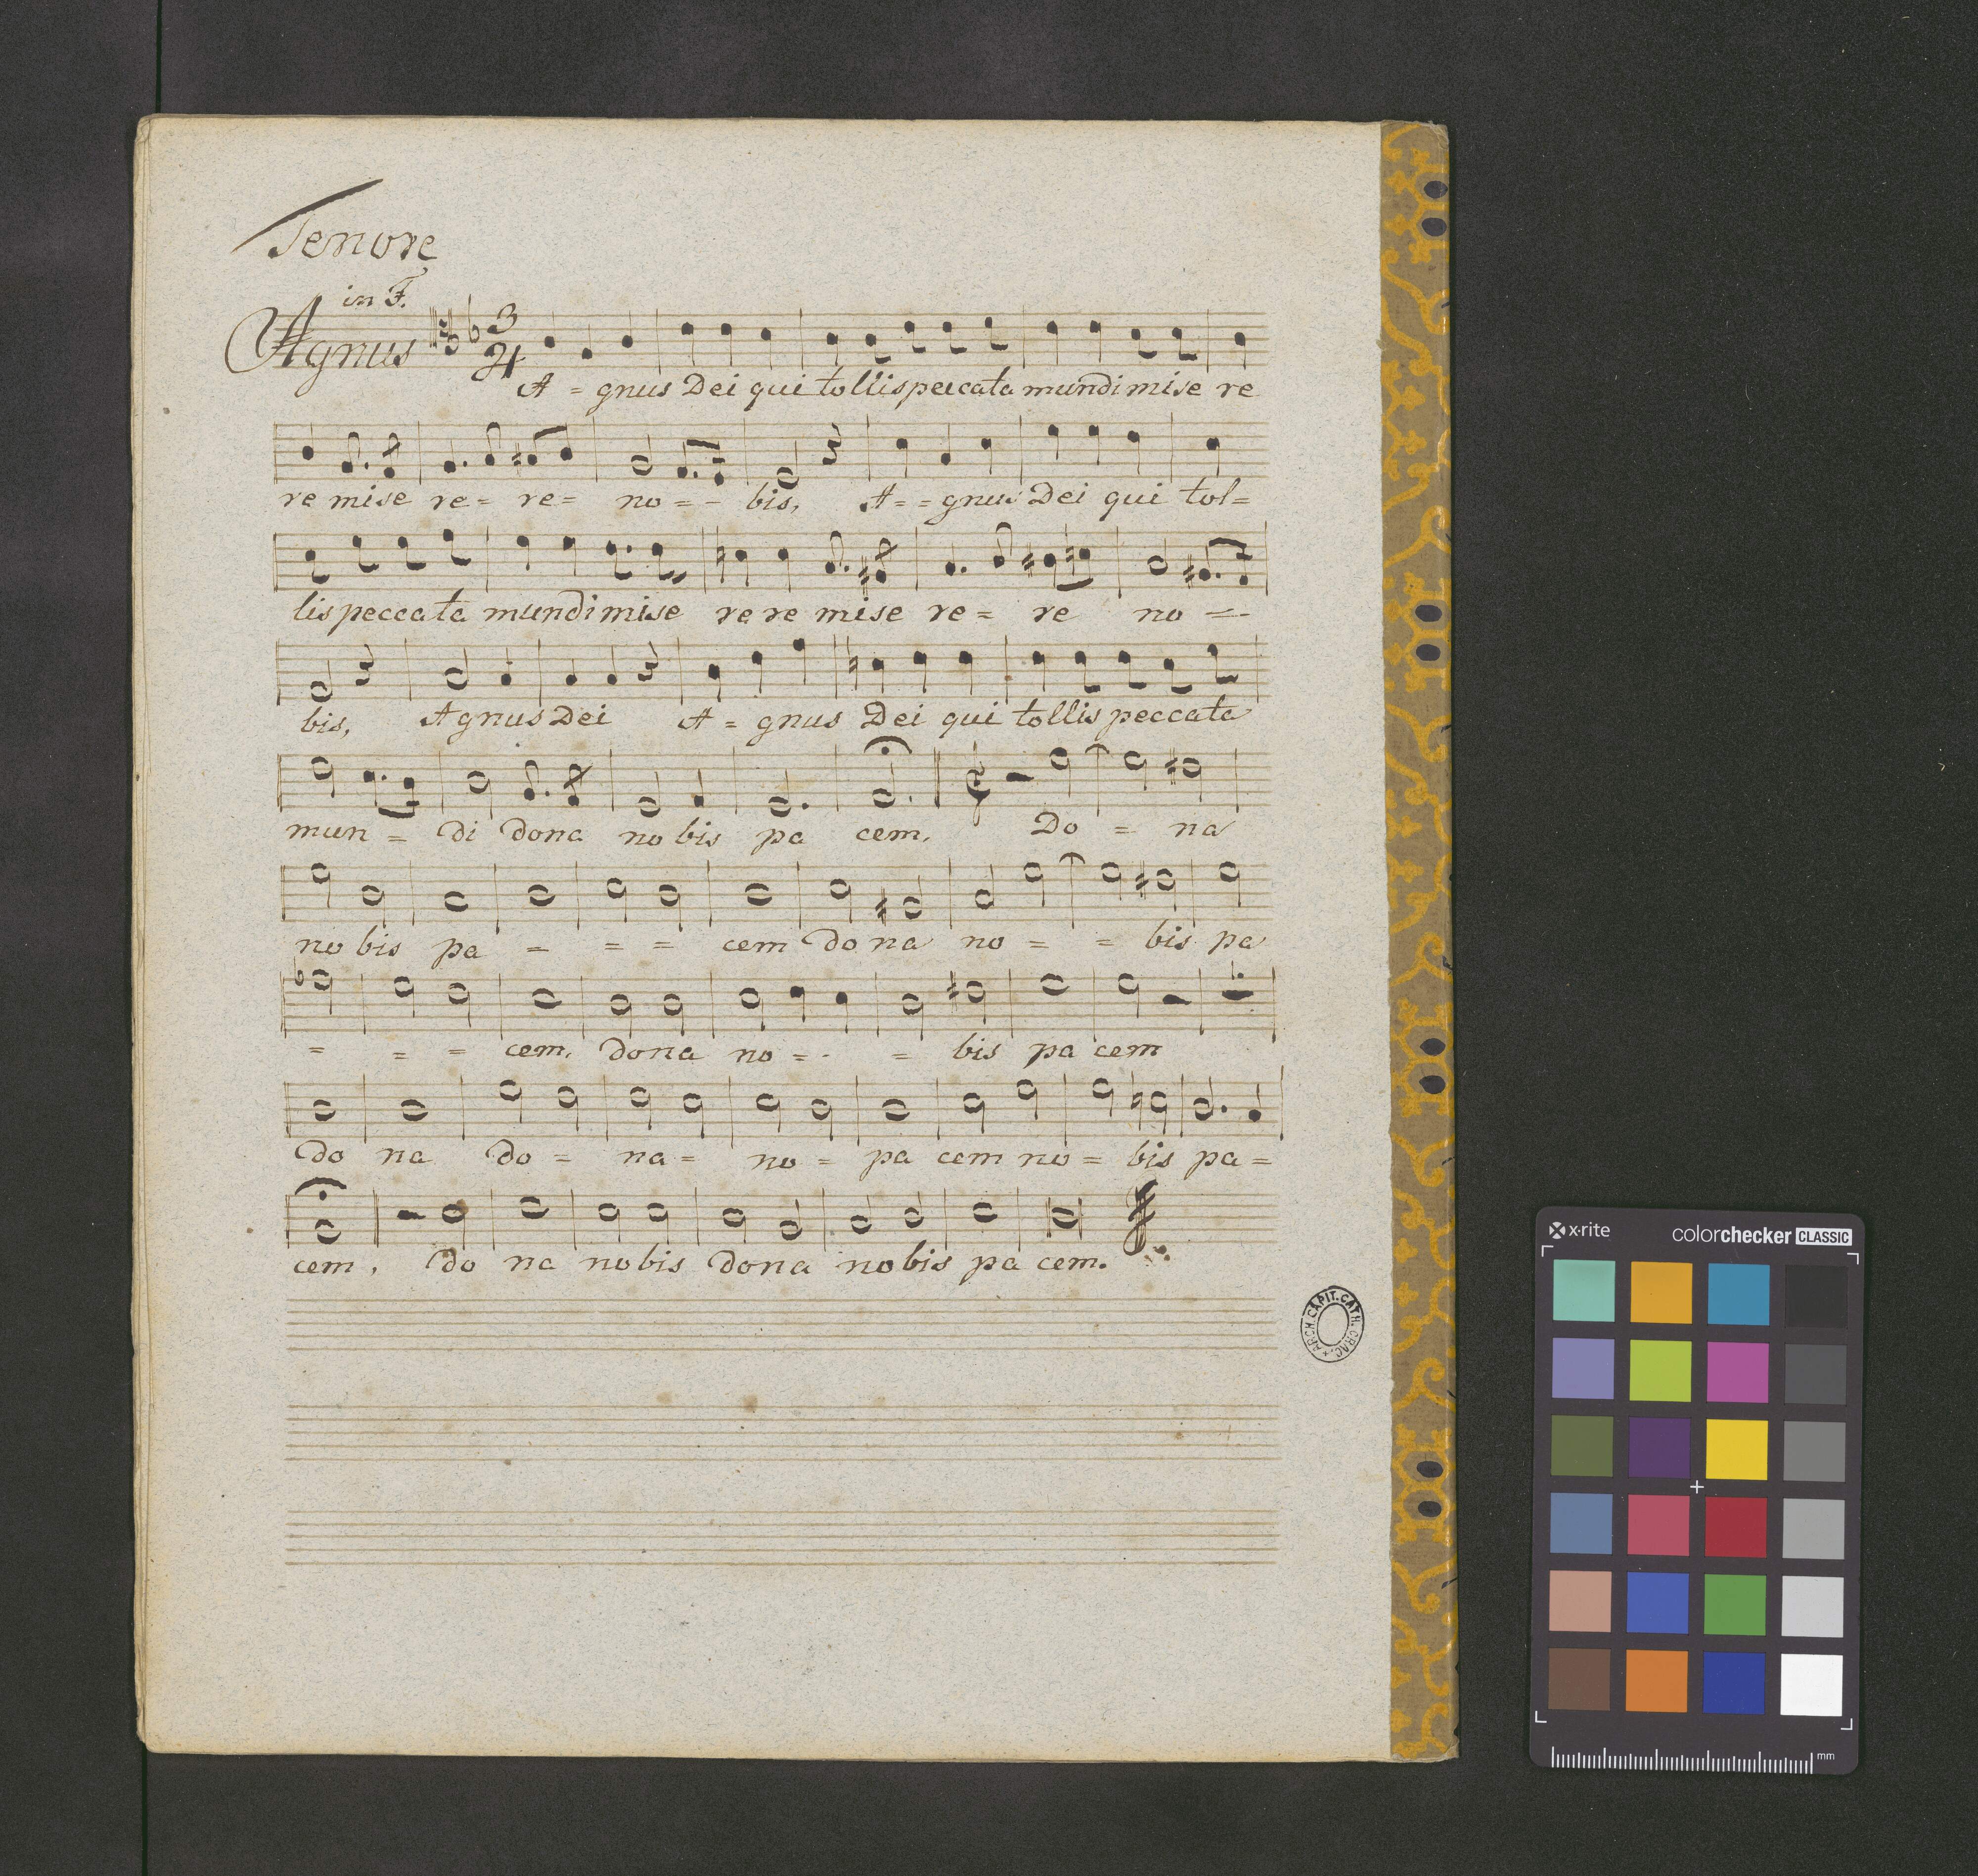 Tenore
in F.
Agnus
3
4
A = gnus Dei qui tollis peccata mundi mise re
re mise re = re = no = - bis, A = = gnus Dei qui tol =
lis peccata mundi mise re re mise re = re no = -
bis, Agnus Dei A = gnus Dei qui tollis peccata
mun = di dona no bis pa cem, Do = na
no bis pa = = = cem do na no = = bis pa
= = = cem, dona no = - = bis pa cem
do na do = na = no = pa cem no = bis pa =
cem, do na no bis dona no bis pa cem.
ARCH. CAPIT. CATH. CRAC.
x·rite colorchecker CLASSIC
mm